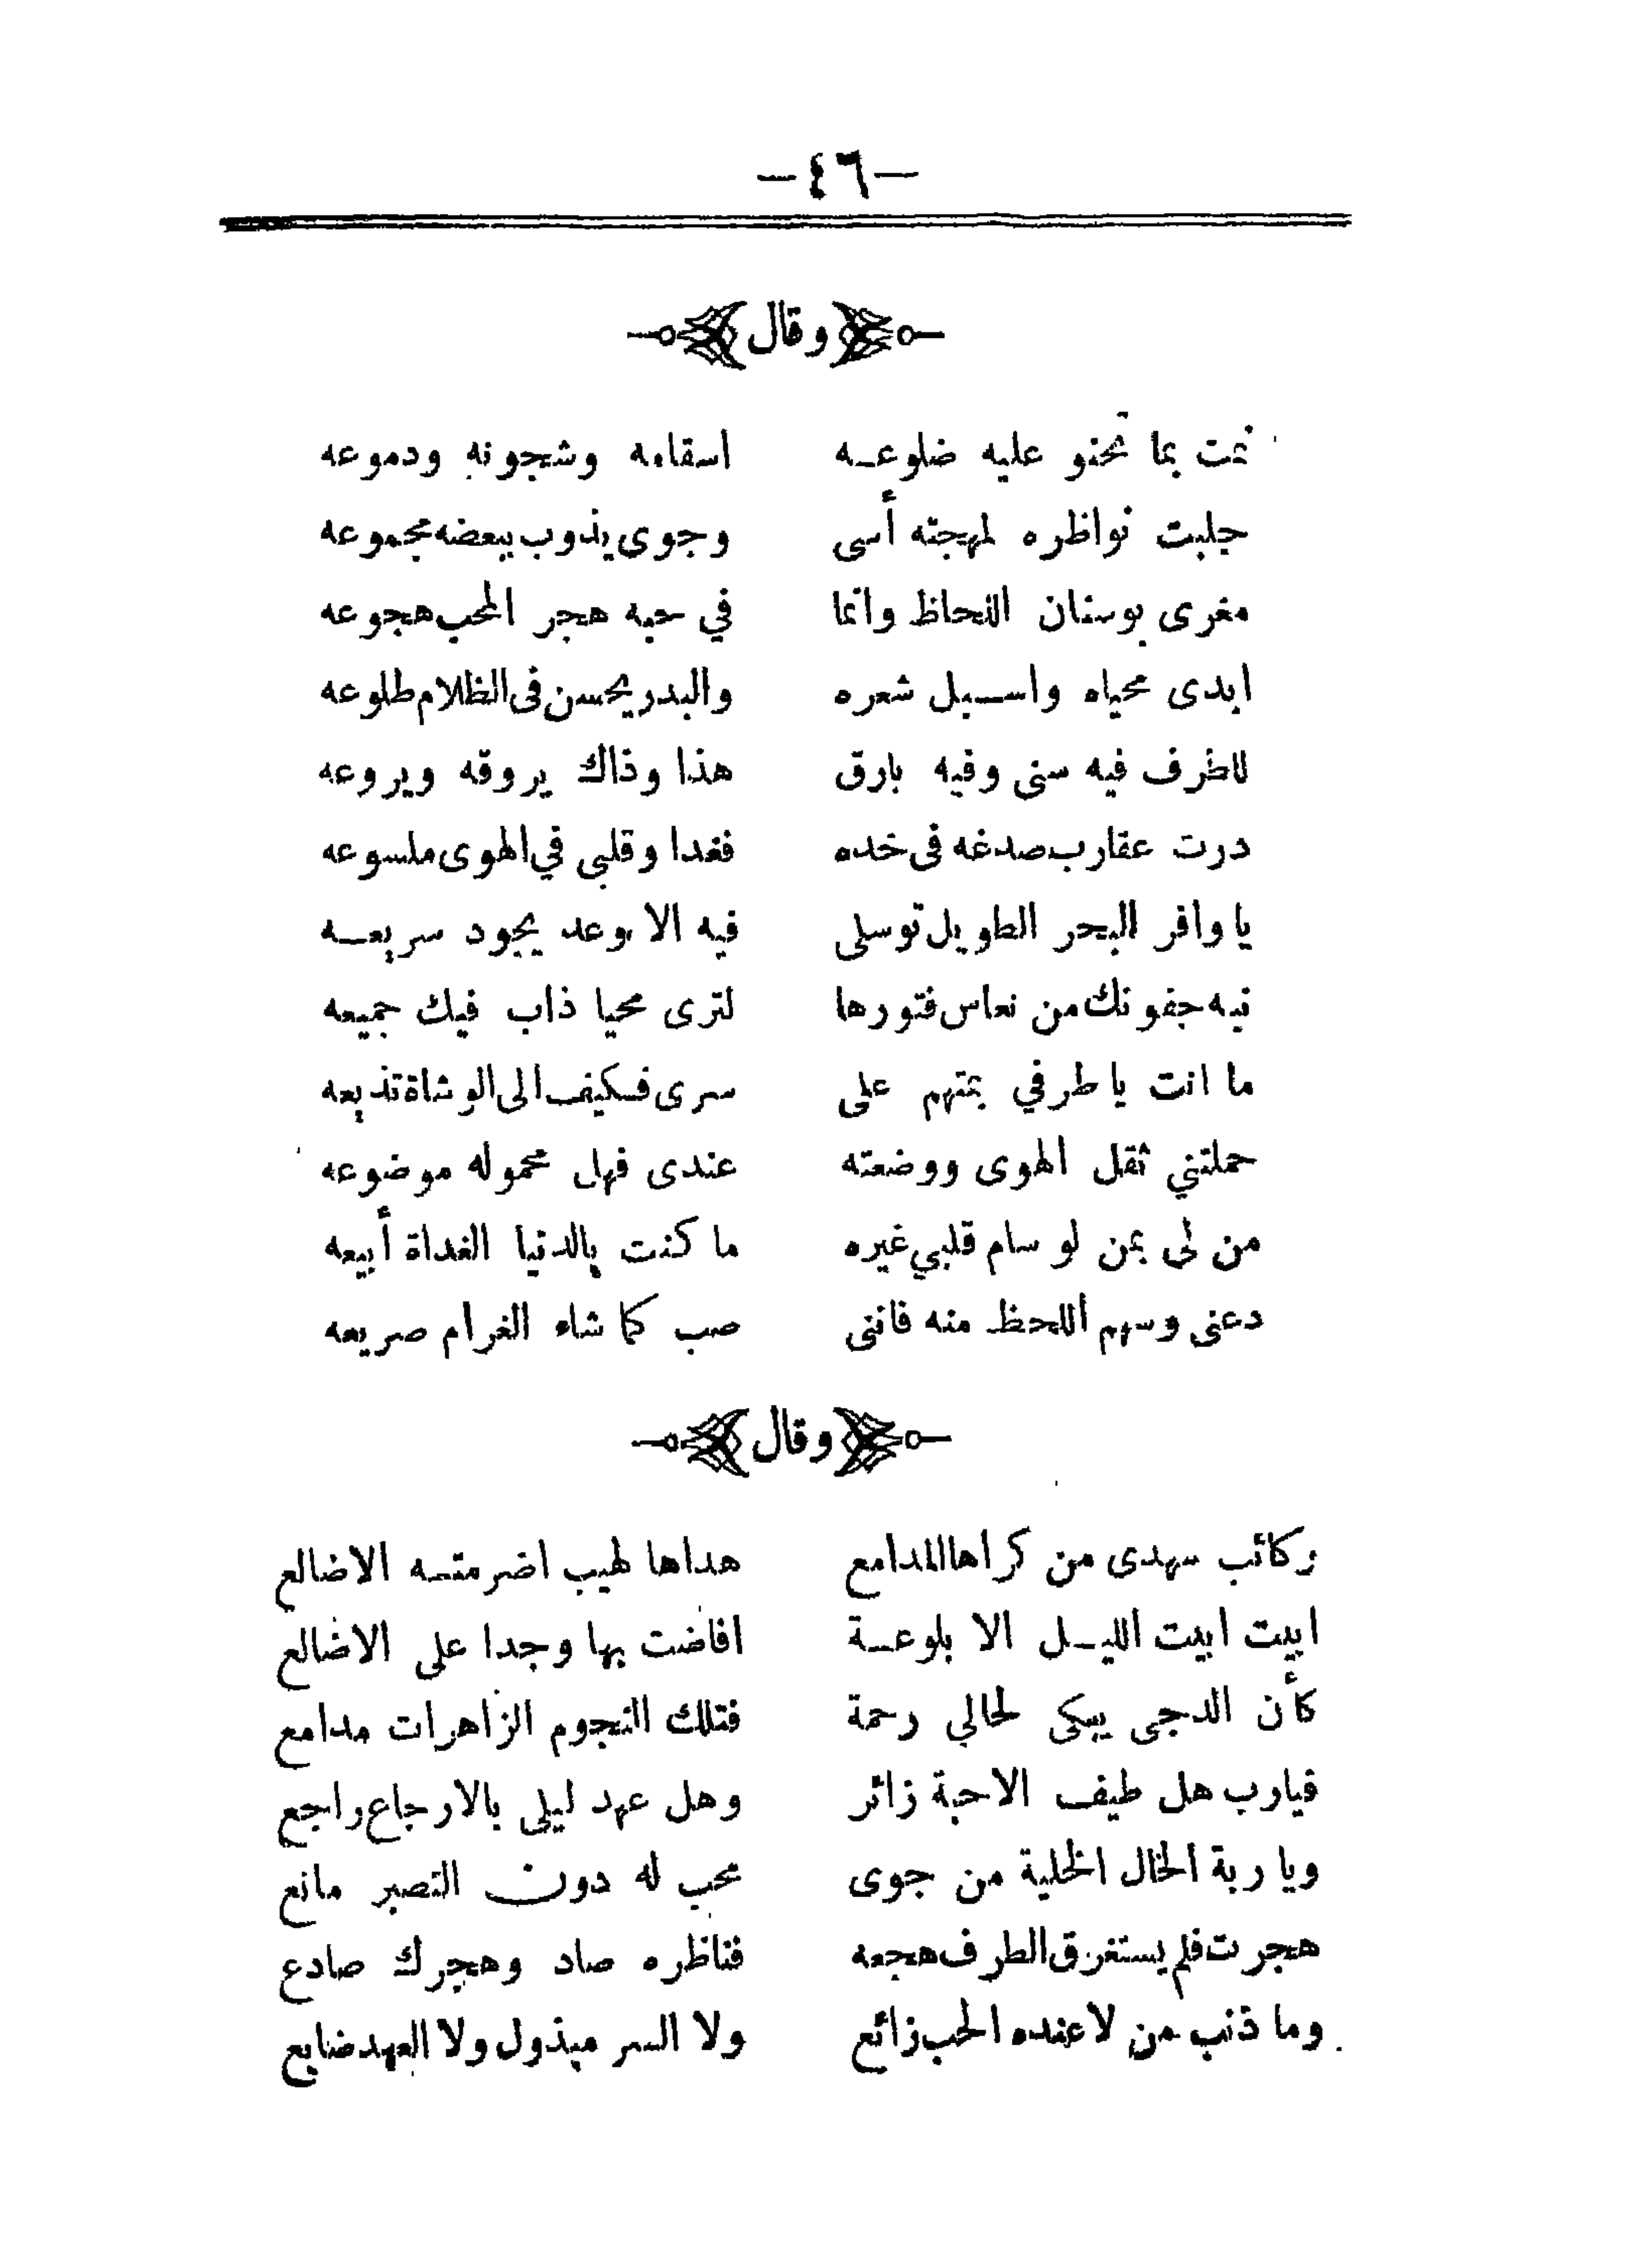 —٤٦—
وقال
نمت بما تحنو عليه ضلوعـه اسقامه وشجونه ودموعه
جلبت نواظره لمهجته أسى وجوى يذوب ببعضه مجموعه
مغرى بوسنان اللحاظ وانما في حبه هجر المحب هجوعه
ابدى محياه واسـبل شعره والبدر يحسن فى الظلام طلوعه
للطرف فيه سنى وفيه بارق هذا وذاك يروقه ويروعه
درت عقارب صدغه فى خده فغدا وقلبى في الهوى ملسوعه
يا وافر البحر الطويل توسلى فيه الا وعد يجود سريعـه
نبه جفونك من نعاس فتورها لترى محيا ذاب فيك جميعه
ما انت يا طرفي بمتهم على سرى فكيف الى الوشاة تذيعه
حملتني ثقل الهوى ووضعته عندى فهل محموله موضوعه
من لى بمن لو سام قلبي غيره ما كنت بالدنيا الغداة أبيعه
دعنى وسهم اللحظ منه فاننى صب كما شاء الغرام صريعه
وقال
ركائب سهدى من كراها المدامع هداها لهيب اضرمتـه الاضالع
ابيت ابيت الليـل الا بلوعـة افاضت بها وجدا على الاضالع
كأن الدجى يبكى لحالي رحمة فتلك النجوم الزاهرات مدامع
فيارب هل طيف الاحبة زائر وهل عهد ليلى بالارجاع راجع
ويا ربة الخال الخلية من جوى محب له دون التصبر مانع
هجرت فلم يستغرق الطرف هجعه فناظره صاد وهجرك صادع
وما ذنب من لا عنده الحب زائع ولا السر مبذول ولا العهد ضايع